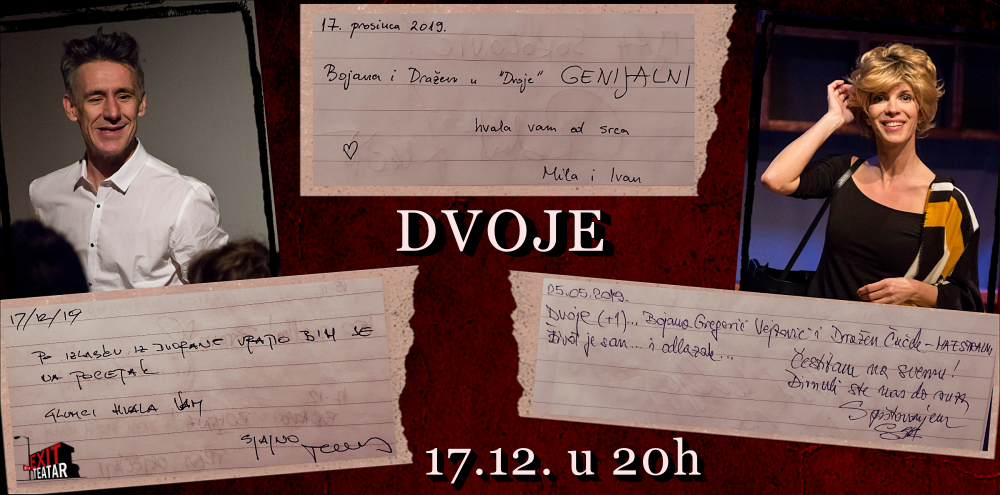 17. prosinca 2019.
Bojana i Dražen u "Dvoje" GENIJALNI
hvala vam od srca
Mila i Ivan
DVOJE
17/12/19
PO IZLASKU IZ DVORANE VRATIO BIH SE
NA POČETAK
GLUMCI HVALA VAM
SJAJNO
25.05.2019.
Dvoje (+1)... Bojana Gregorić Vejzović i Dražen Čuček - MAESTRALNI
Život je san... i odlazak...
Čestitam na svemu!
Dirnuli ste nas do suza
S poštovanjem
EXIT
TEATAR
17.12. u 20h